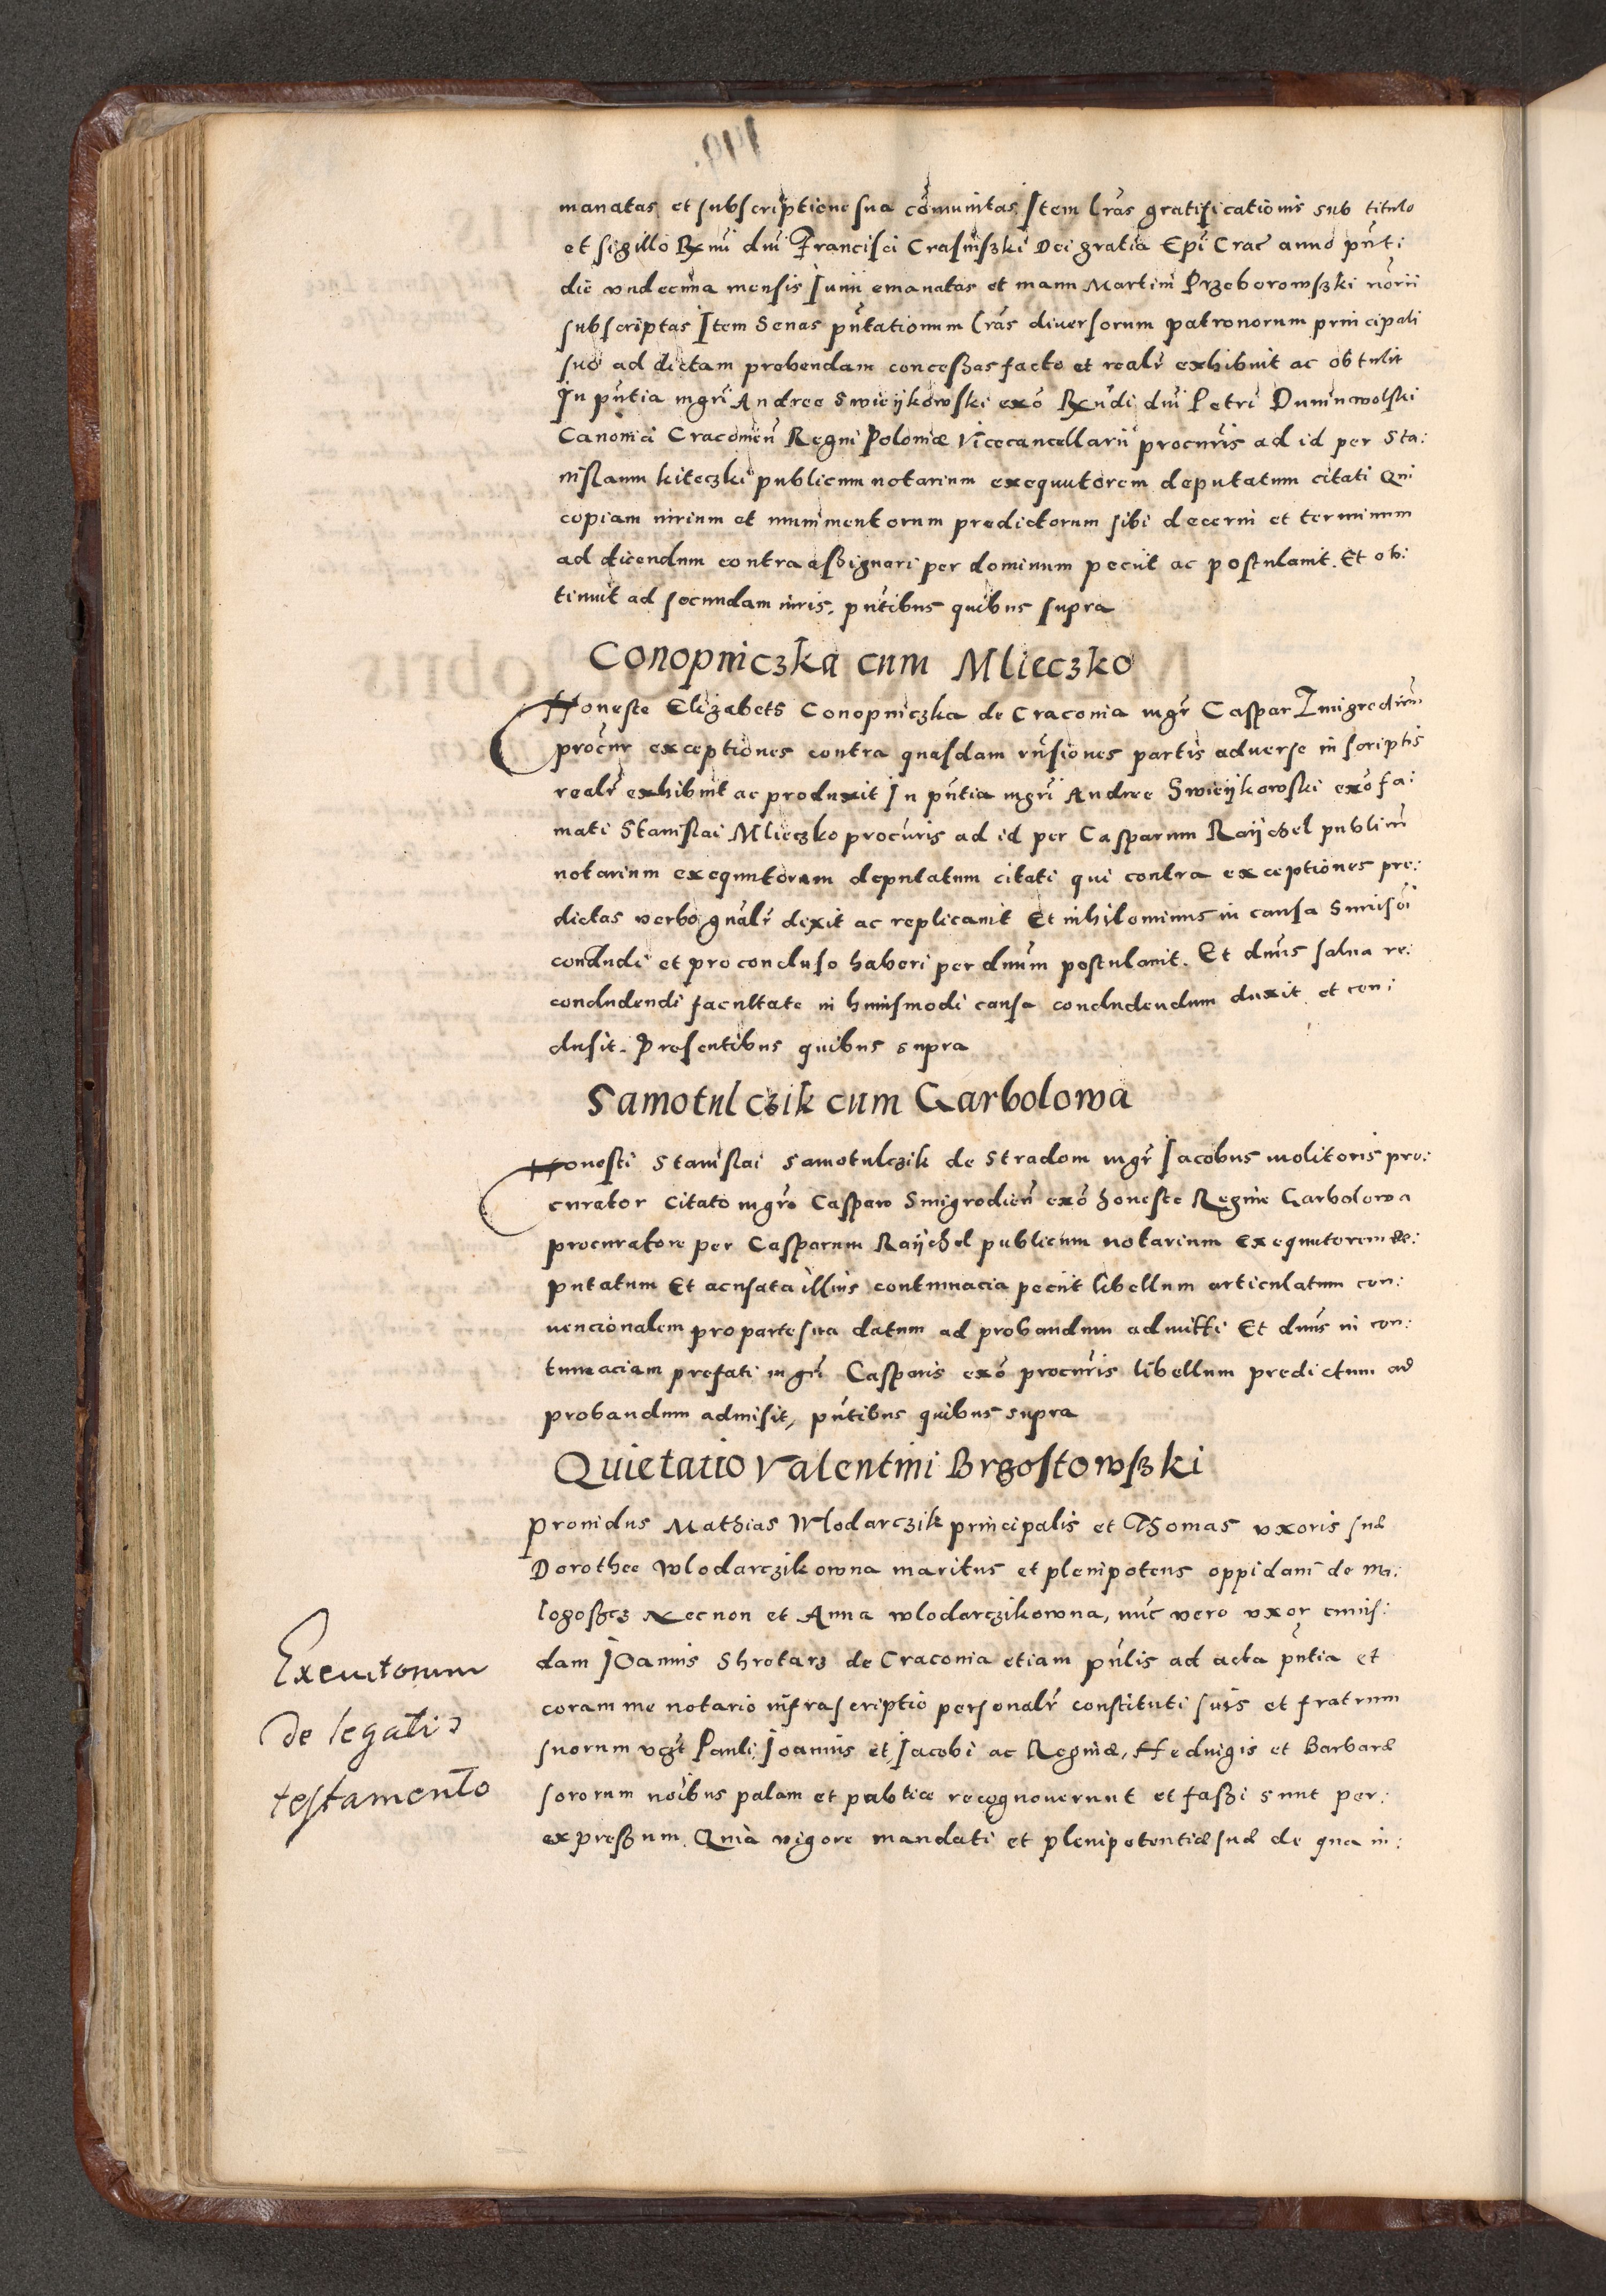 manatas et subscriptione sua cõmunitas. Item Lrãs gratificationis sub titulo
et sigillo Rxmi dni Francisci Crasinszki Dei gratia Epi Crac anno pñti
die undecima mensis Iunij emanatas et manu Martini Przeborowszki norii
subscriptas Item Senas pñtationum Lrãs diversorum patronorum principali
suo ad dictam prebendam conceszas facto et realr exhibuit ac obtulit
In pñtia mgri Andree Swieykowski exo Rxndi dni Petri Duninwolski
Canonici Cracovien Regni Poloniæ Vicecancellarii procuris ad id per Sta:
nislaum kiteczki publicum notarium exequutorem deputatum citati Qui
copiam iurium et munimentorum predictorum sibi decerni et terminum
ad dicendum contra aszignari per dominum peciit ac postulavit. Et ob:
tinuit ad secundam iuris. pñtibus quibus supra
Conopniczka cum Mlieczko
Honeste Elizabeth Conopniczka de Cracovia mgr Caspar Zmigrodien
procur exceptiones contra quasdam rñsiones partis adverse in scriptis
realr exhibuit ac produxit In pñtia mgri Andree Swieykowski exo fa:
mati Stanislai Mlieczko procuris ad id per Casparum Raychel publicũ
notarium exequutorem deputatum citati qui contra exceptiones pre:
dictas verbo gnalr dixit ac replicavit Et nihilominus in causa
concludi et pro concluso haberi per dnum postulavit. Et dnus salva re:
concludendi facultate in huiusmodi causa concludendum duxit et con:
clusit. Presentibus quibus supra
Samotulczik cum Garbolowa
Honesti Stanislai Samotulczik de Stradom mgr Iacobus molitoris pro:
curator citato mgro Casparo Smigrodien exo honeste Regine Garbolowa
procuratore per Casparum Raychel publicum notarium exequutorem de:
putatum Et acusata illius contumacia peciit libellum articulatum con:
vencionalem pro parte sua datum ad probandum admitti Et dnus in con:
tumaciam prefati mgri Casparis exo procuris libellum predictum ad
probandum admisit, pñtibus quibus supra
Quietatio Valentini Brzostowszki
Providus Mathias Wlodarczik principalis et Thomas uxoris suæ
Dorothee Wlodarczikowna maritus et plenipotens oppidani de Ma:
logoszcz Necnon et Anna wlodarczikowna, nuc vero uxor cuius:
dam IOannis Shrotarz de Cracovia etiam pñlis ad acta pñtia et
coram me notario infrascriptio personalr constituti suis et fratrum
suorum vczt Pauli, Ioannis et Iacobi ac Reginæ, Hedvigis et Barbaræ
sororum noibus palam et publice recognoverunt et faszi sunt per:
expreszum. Quia vigore mandati et plenipotentiæ suæ de qua in:
Executorum
de legatis
testamento